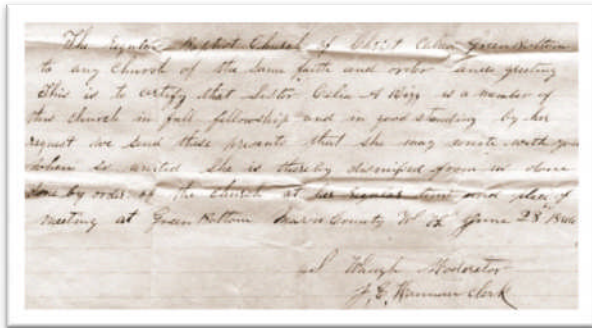 The Regular Baptist Church of Christ Called Green Bottom
to any Church of the same faith and order sends greeting
This is to certify that Sister Celia A is a member of
this church in full fellowship and in good standing by her
request we send these presents that she may unite with you
when so united she is thereby dismissed from us done
done by order of the church at her regular time and place of
meeting at Green Bottom Mason County W June 28
Waugh Moderator
Clerk